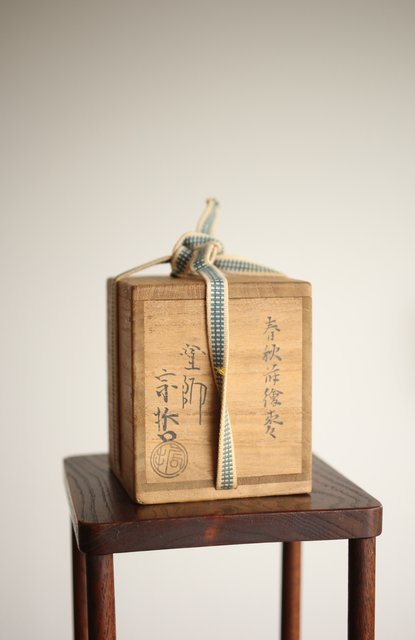 春秋蒔繪棗
塗師
宗哲